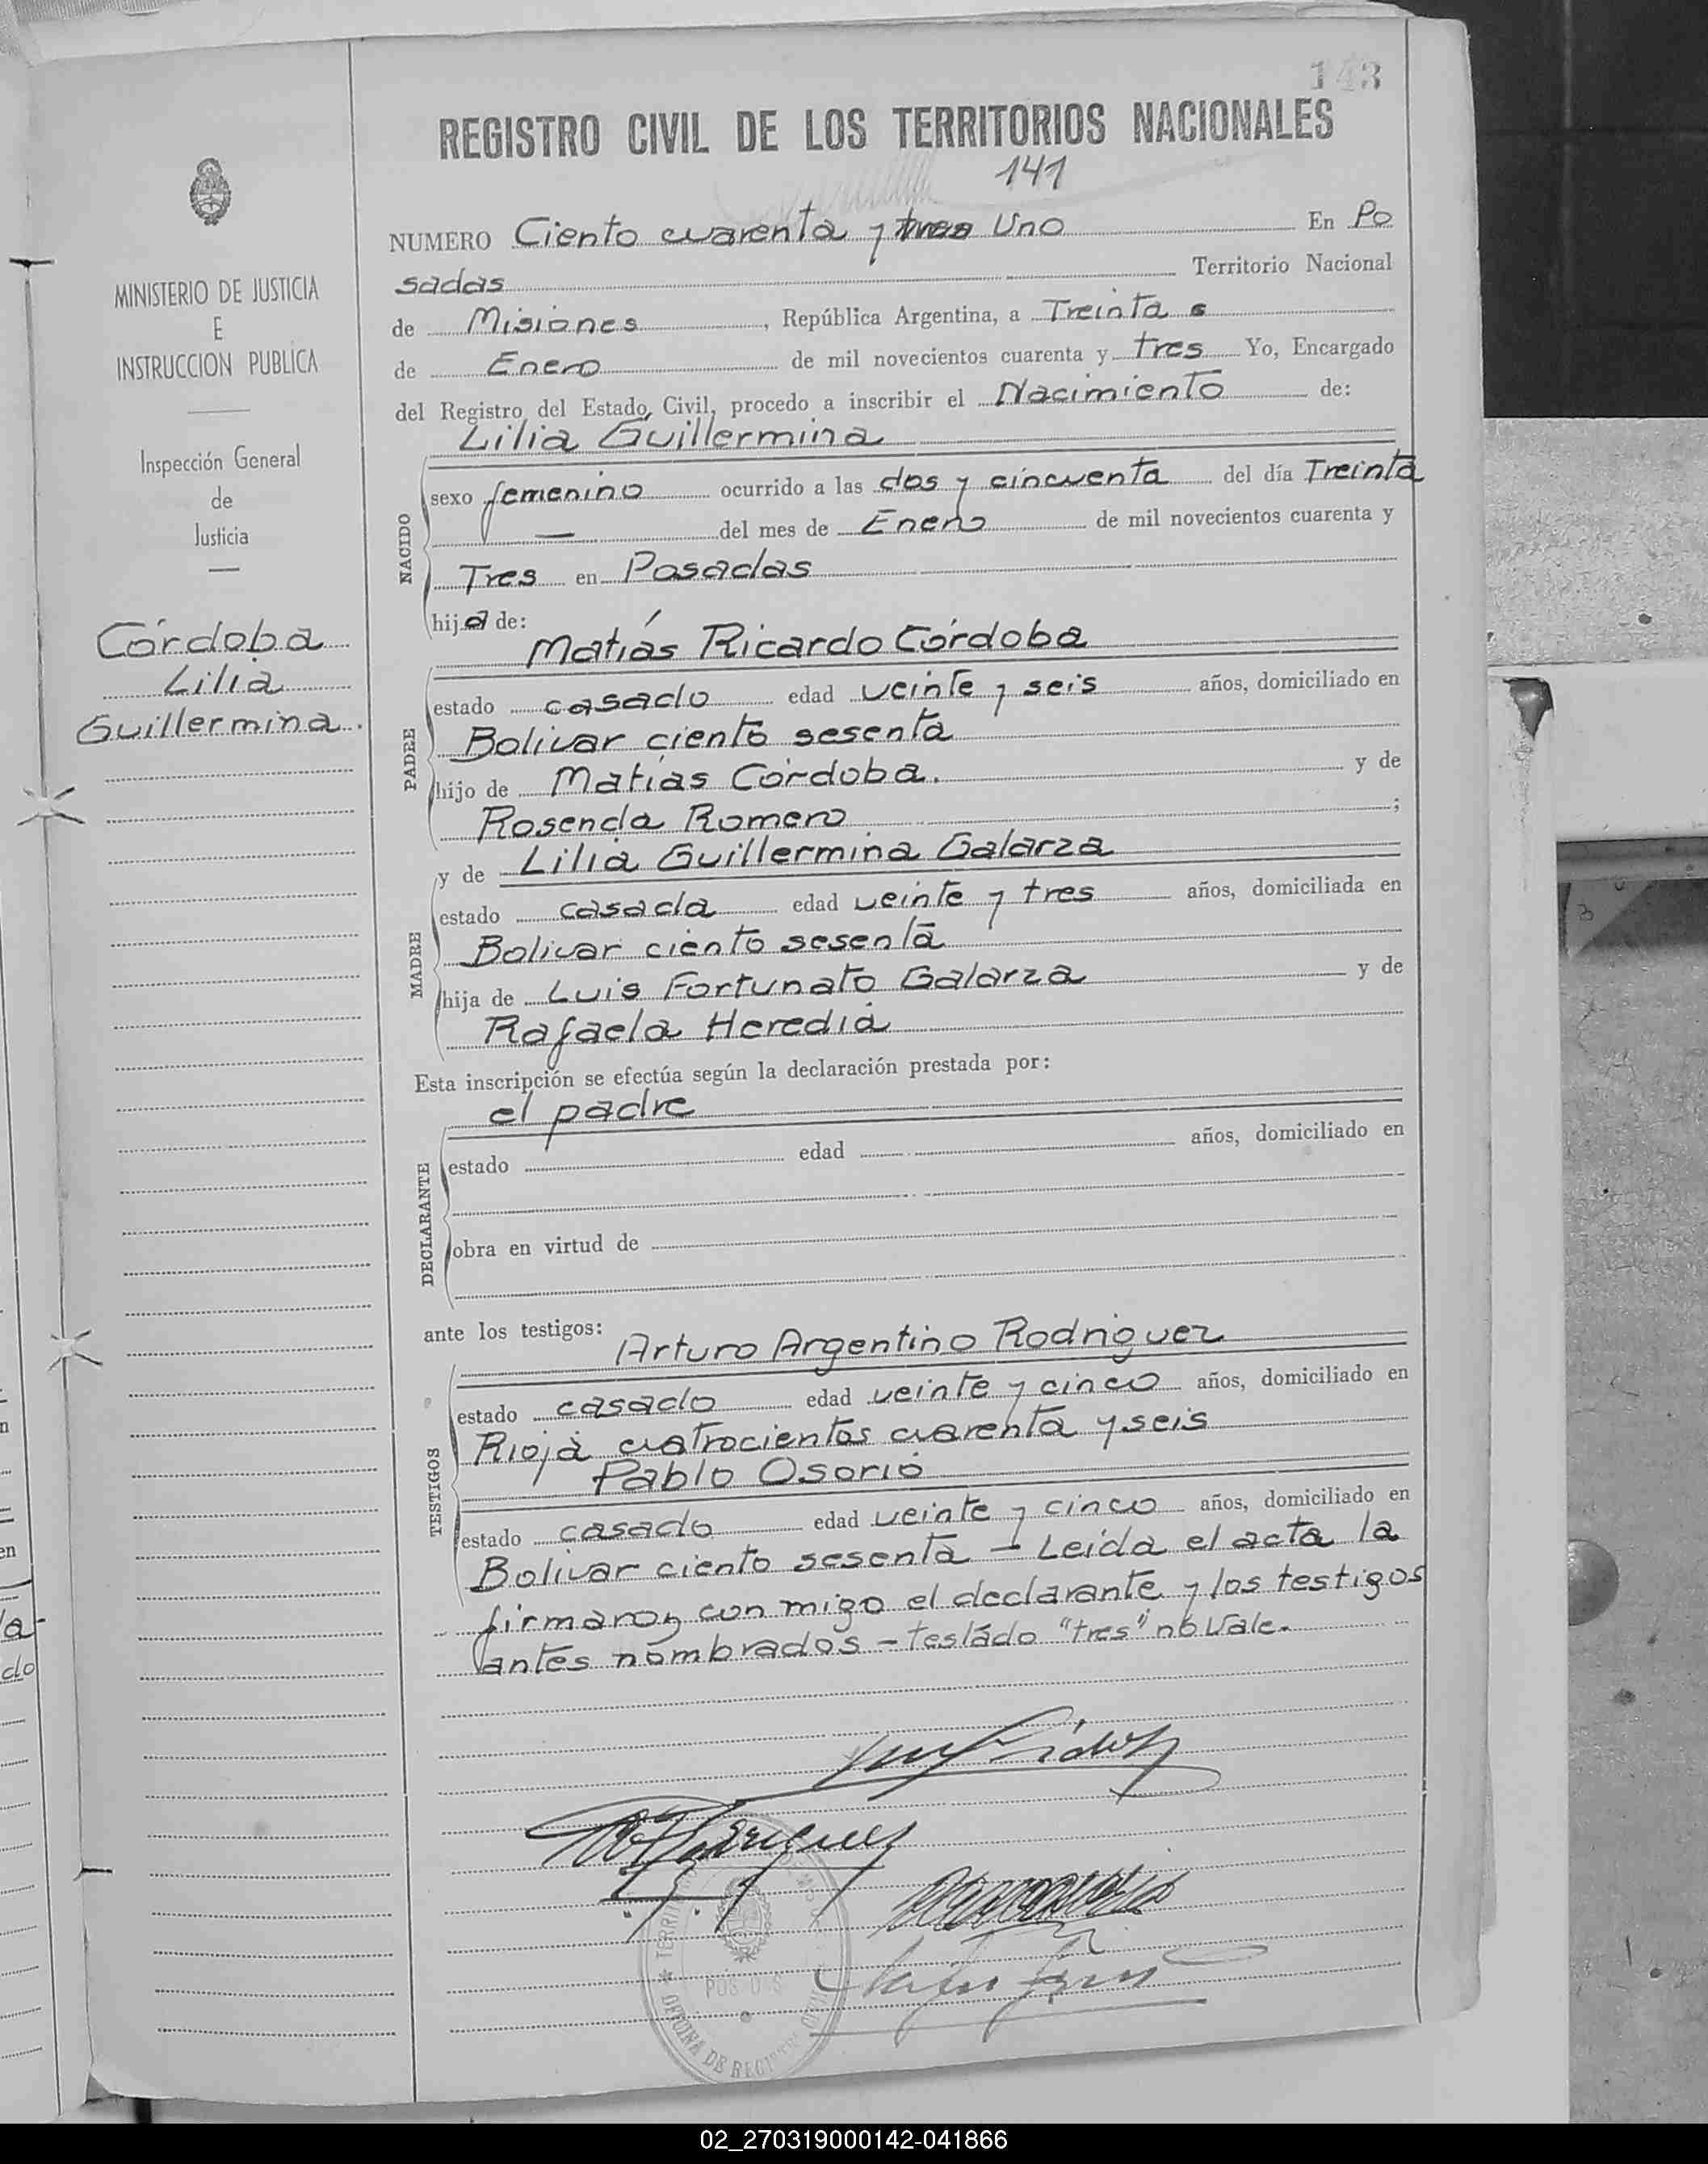 143
REGISTRO CIVIL DE LOS TERRITORIOS NACIONALES
141
NUMERO Ciento cuarenta y tres Uno En Po
sadas Territorio Nacional
de Misiones, República Argentina, a Treinta
de Enero de mil novecientos cuarenta y tres Yo, Encargado
del Registro del Estado Civil, procedo a inscribir el Nacimiento de:
Lilia Guillermina
NACIDO
sexo femenino ocurrido a las dos y cincuenta del día Treinta
— del mes de Enero de mil novecientos cuarenta y
Tres en Posadas
hija de:
Matías Ricardo Córdoba
PADRE
estado casado edad veinte y seis años, domiciliado en
Bolivar ciento sesenta
hijo de Matías Córdoba. y de
Rosenda Romero ;
y de Lilia Guillermina Galarza
MADRE
estado casada edad veinte y tres años, domiciliada en
Bolivar ciento sesenta
hija de Luis Fortunato Galarza y de
Rafaela Heredia
Esta inscripción se efectúa según la declaración prestada por:
el padre
DECLARANTE
estado edad años, domiciliado en
obra en virtud de
ante los testigos:
Arturo Argentino Rodriguez
TESTIGOS
estado casado edad veinte y cinco años, domiciliado en
Rioja cuatrocientos cuarenta y seis
Pablo Osorio
estado casado edad veinte y cinco años, domiciliado en
Bolivar ciento sesenta – Leida el acta la
firmaron con migo el declarante y los testigos
antes nombrados – testádo "tres" no vale.
MINISTERIO DE JUSTICIA
E
INSTRUCCION PUBLICA
Inspección General
de
Justicia
Córdoba
Lilia
Guillermina.
OFICINA DE REGISTRO CIVIL
02_270319000142-041866